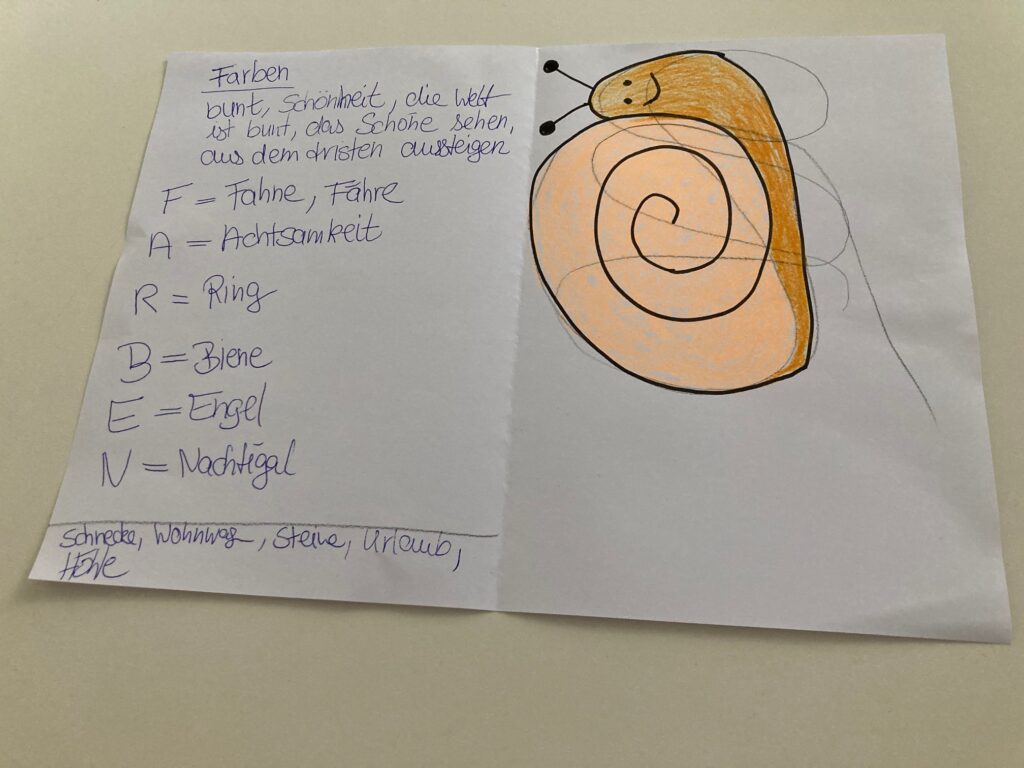 Farben
bunt, Schönheit, die Welt
ist bunt, das Schöne sehen,
aus dem tristen aussteigen
F = Fahne, Fähre
A = Achtsamkeit
R = Ring
B = Biene
E = Engel
N = Nachtigal
Schnecke, Wohnwag, Steine, Urlaub,
Höhle